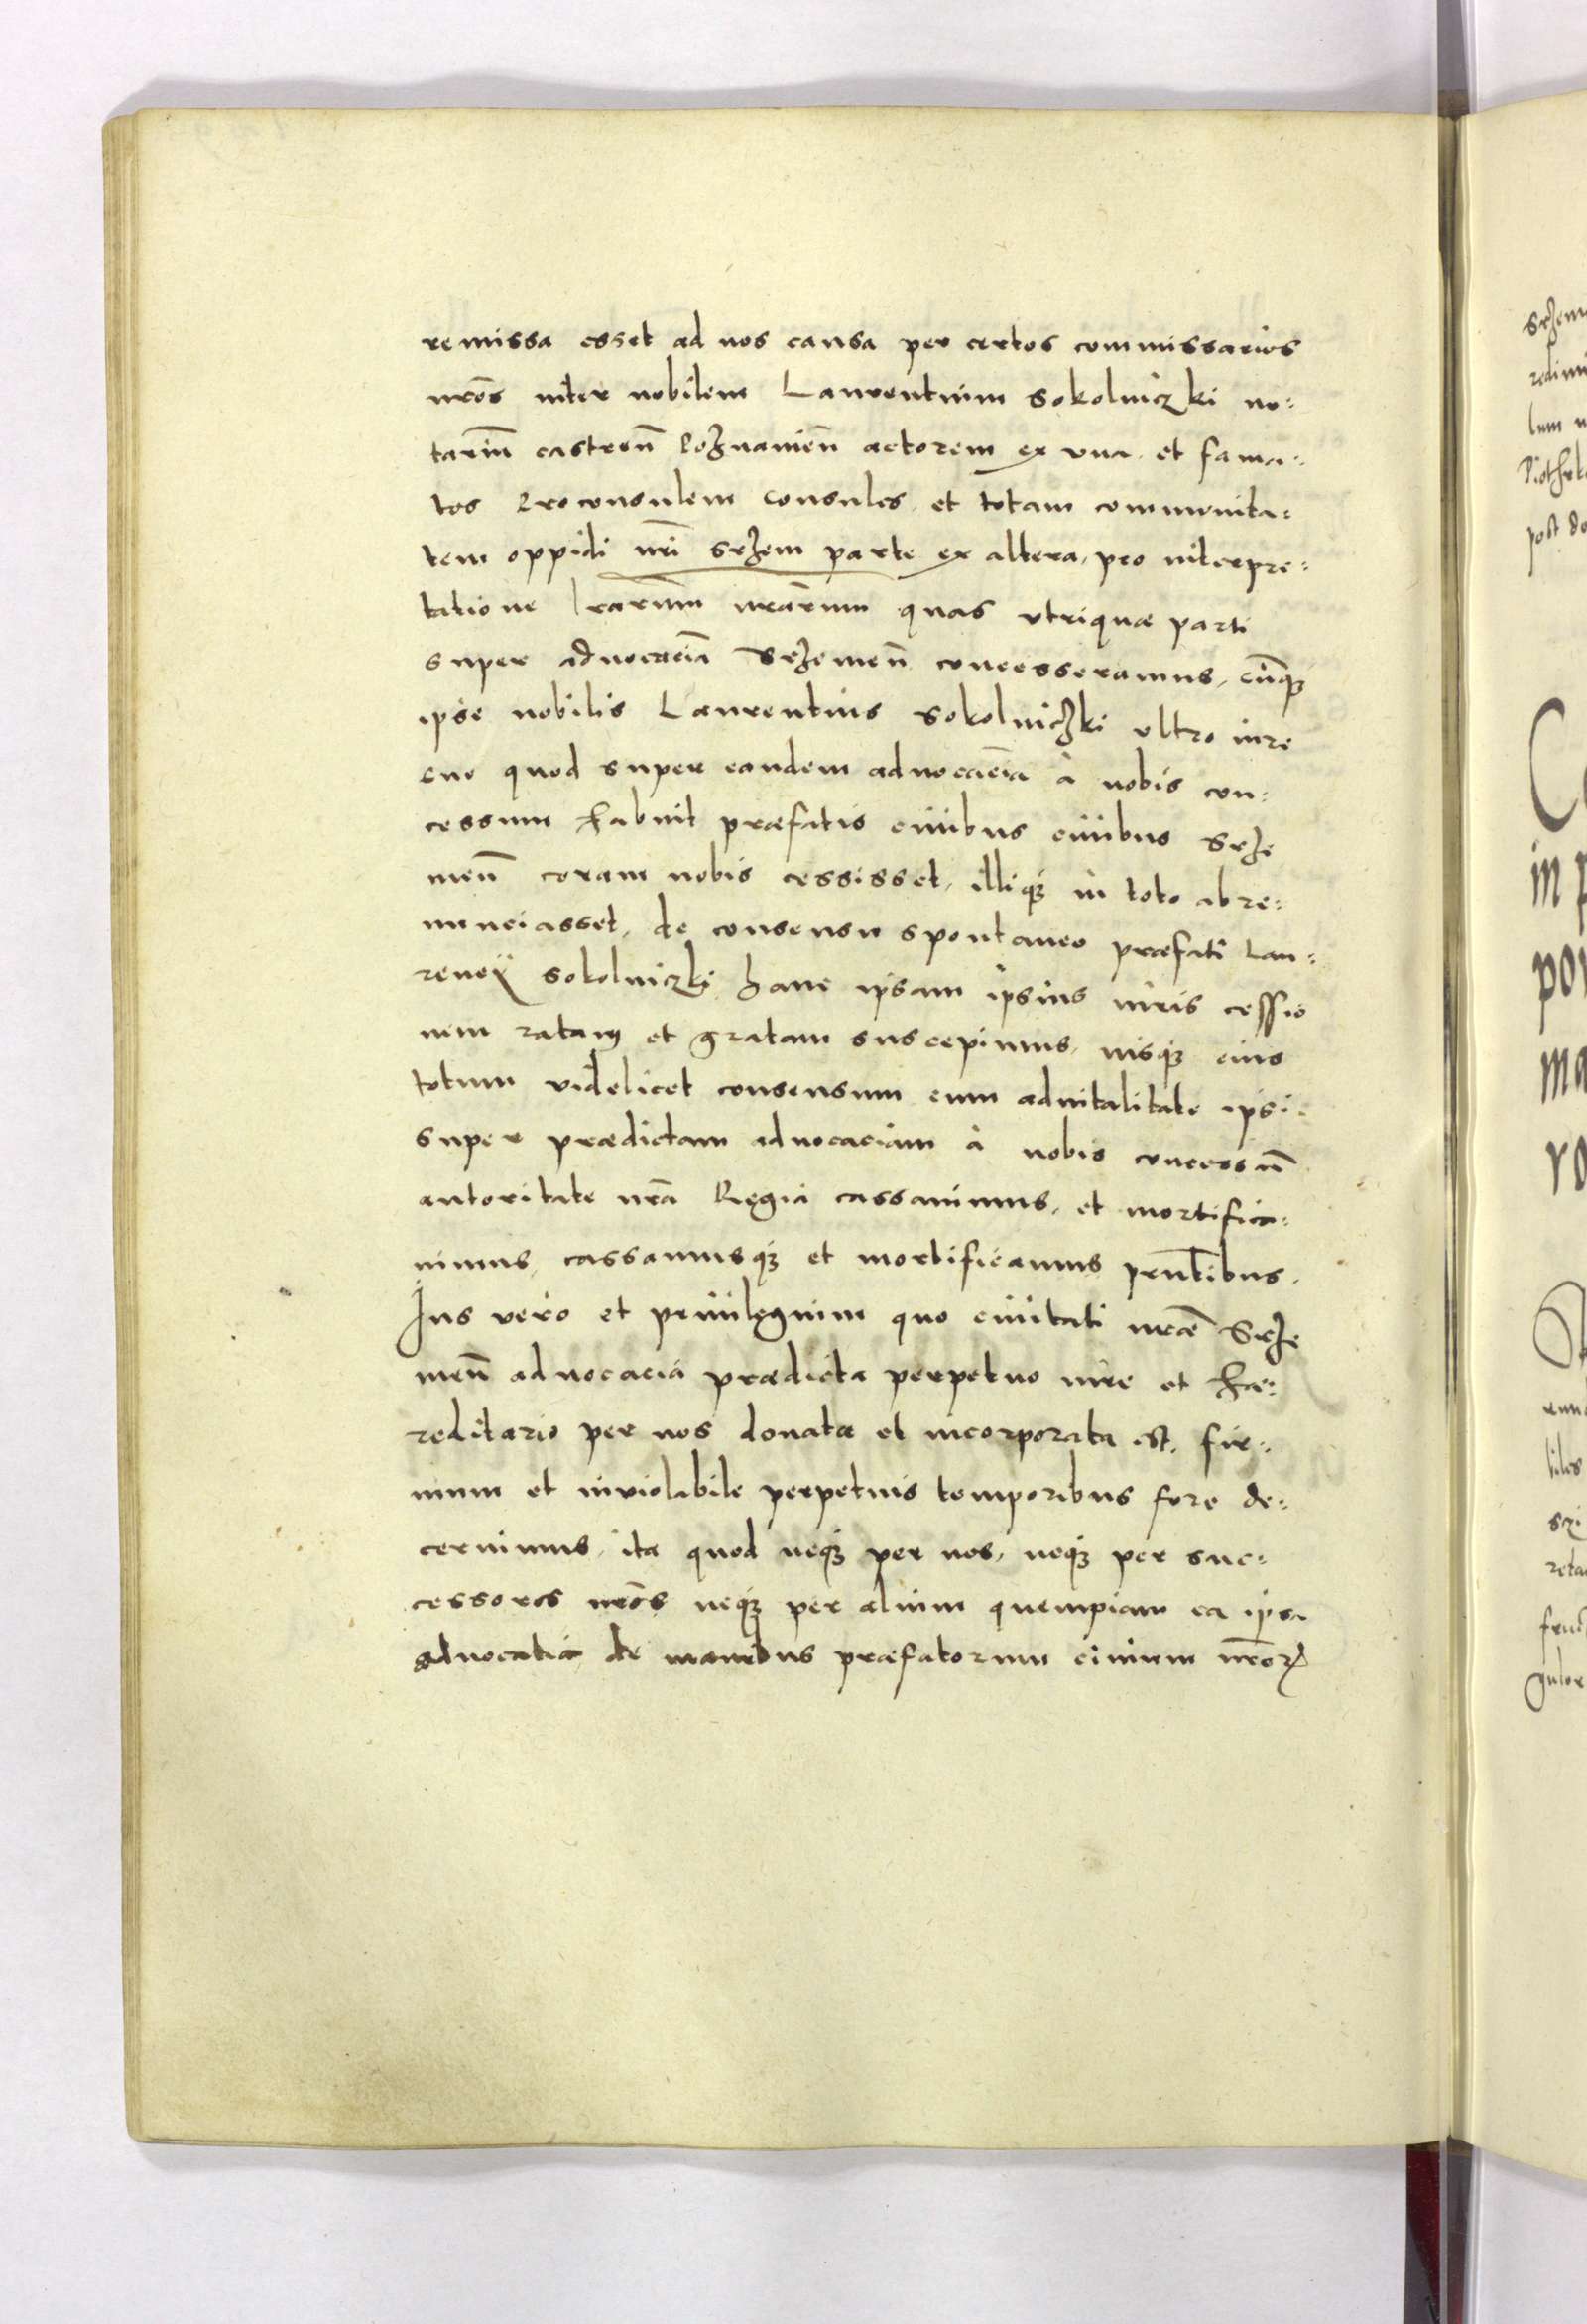 remissa esset ad nos causa per certos commissarios
nr̃os inter nobilem Laurentium Sokolniczki no:
tariũ castreñ Pożnanieñ actorem ex vna et fama:
tos Proconsulem Consules et totam communita:
tem oppidi nr̃i Srżem parte ex altera, pro interpre:
tatione lr̃arum nr̃arum quas vtriquae parti
super aduocaciã Srżemeñ concesseramus, cũq3
ipse nobilis Laurentius Sokolniczki vltro iure
suo quod super eandem aduocaciã à nobis con:
cessum habuit præfatis ciuibus ciuibus Srże
meñ coram nobis cessisset, illiq3 in toto abre:
nunciasset, de consensu spontaneo præfati Lau:
rencij Sokolniczki hanc ipsam ipsius iuris cessio
nem ratam et gratam suscepimus, iusq3 eius
totum videlicet consensum cum aduitalitate ipsi
super prædictam aduocaciam à nobis concessũ
autoritate nr̃a Regia cassauimus, et mortifica:
uimus, cassamusq3 et mortificamus prñtibus.
Jus vero et priuilegium quo ciuitati nr̃æ Srże
meñ aduocacia prædicta perpetuo iure et hæ:
reditario per nos donata et incorporata est, fir:
mum et inviolabile perpetuis temporibus fore de:
cernimus, ita quod neq3 per nos, neq3 per suc:
cessores nr̃os neq3 per alium quempiam ea ipsa
aduocatia de manibus præfatorum ciuium nr̃orꝝ
Srżem
lum
post
in